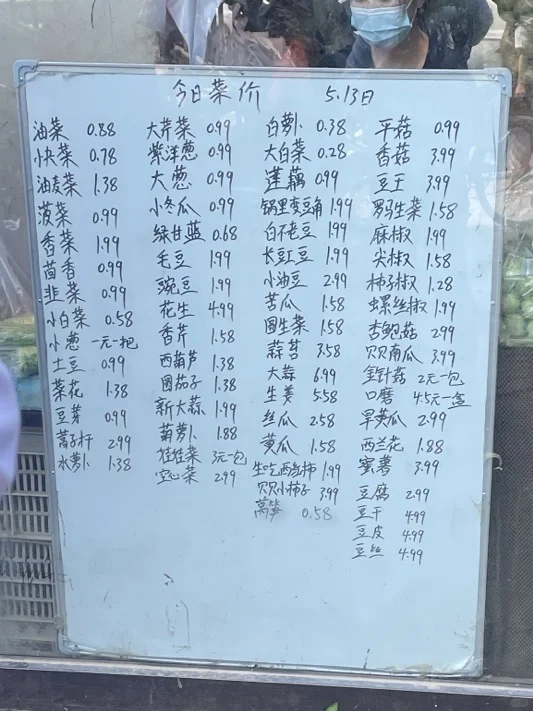 今日菜价 5.13日
油菜 0.88
快菜 0.78
油麦菜 1.38
菠菜 0.99
香菜 1.99
茴香 0.99
韭菜 0.99
小白菜 0.58
小葱 一元一把
土豆 0.99
菜花 1.38
豆芽 0.99
蒿子杆 2.99
水萝卜 1.38
大芹菜 0.99
紫洋葱 0.99
大葱 0.99
小冬瓜 0.99
绿甘蓝 0.68
毛豆 1.99
豌豆 1.99
花生 4.99
香芹 1.58
西葫芦 1.38
圆茄子 1.38
新大蒜 1.99
葫萝卜 1.88
娃娃菜 3元一包
空心菜 2.99
白萝卜 0.38
大白菜 0.28
莲藕 0.99
锅里变豆角 1.99
白不老豆 1.99
长豆豆 1.99
小油豆 2.99
苦瓜 1.58
圆生菜 1.58
蒜苔 3.58
大蒜 6.99
生姜 5.58
丝瓜 2.58
黄瓜 1.58
生吃西红柿 1.99
贝贝小柿子 3.99
莴笋 0.58
平菇 0.99
香菇 3.99
豆王 3.99
罗马生菜 1.58
麻椒 1.99
尖椒 1.58
柿子椒 1.28
螺丝椒 1.99
杏鲍菇 2.99
贝贝南瓜 3.99
金针菇 2元一包
口磨 4.5元一盒
旱黄瓜 2.99
西兰花 1.88
蜜薯 3.99
豆腐 2.99
豆干 4.99
豆皮 4.99
豆丝 4.99